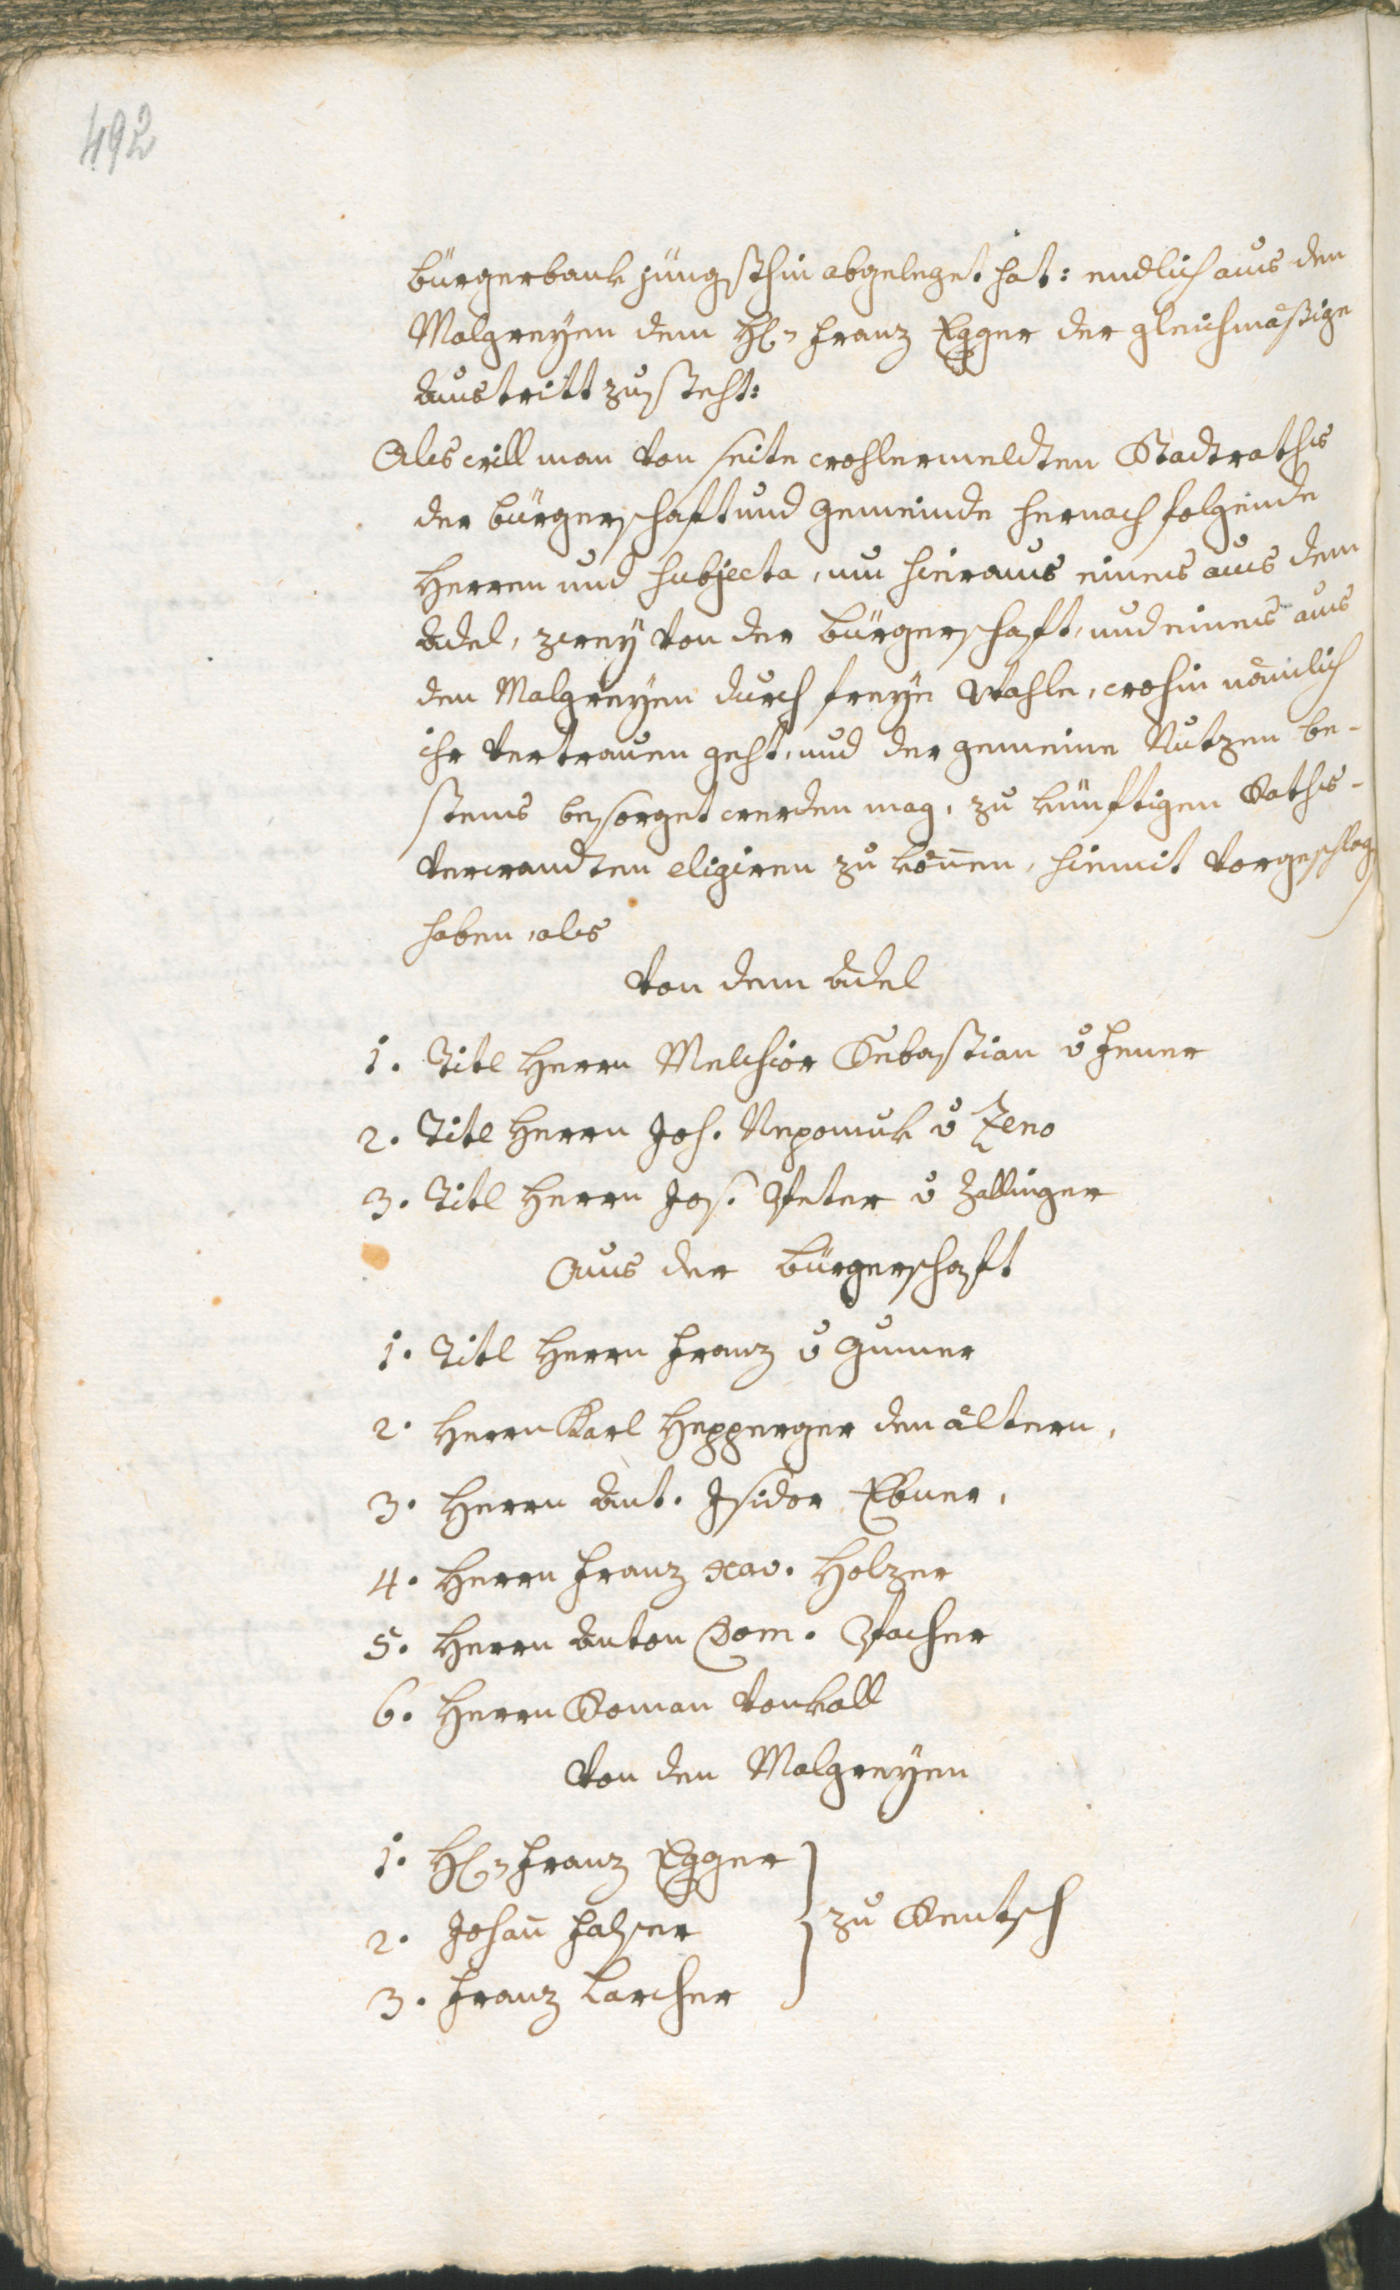 492
bürgerbank jüngsthin abgeleget hat: endlich aus den
Malgreyen dem H: Franz Egger der gleichmäßige
Austritt zusteht:
Als will man von seite wohlermeldten Stadtraths
der bürgerschaft und Gemeinde hernach folgende
Herren und Subjecta, um hieraus einens aus dem
Adel, zwey von der bürgerschaft, und einens aus
den Malgreyen durch freye Wahle, wohin nämlich
ihr Vertrauen geht, und der gemeine Nutzen be-
stens besorget werden mag, zu künftigen Raths-
verwandten eligiren zu können, hiemit vorgeschlag
haben, als
Von dem Adel
1. Titl Herrn Melchior Sebastian v Jenner
2. Titl Herrn Joh. Nepomuk v Zeno
3. Titl Herrn Jos. Peter v Zallinger
Aus der bürgerschaft
1. Titl Herrn Franz v Gumer
2. Herrn Karl Hepperger den ältern,
3. Herrn Ant. Isidor Ebner,
4. Herrn Franz Xav. Holzer
5. Herrn Anton Dom. Pacher
6. Herrn Roman Vonkall
Von den Malgreyen
1. H: Franz Egger
2. Johan̄ Falser } zu Rentsch
3. Franz Larcher